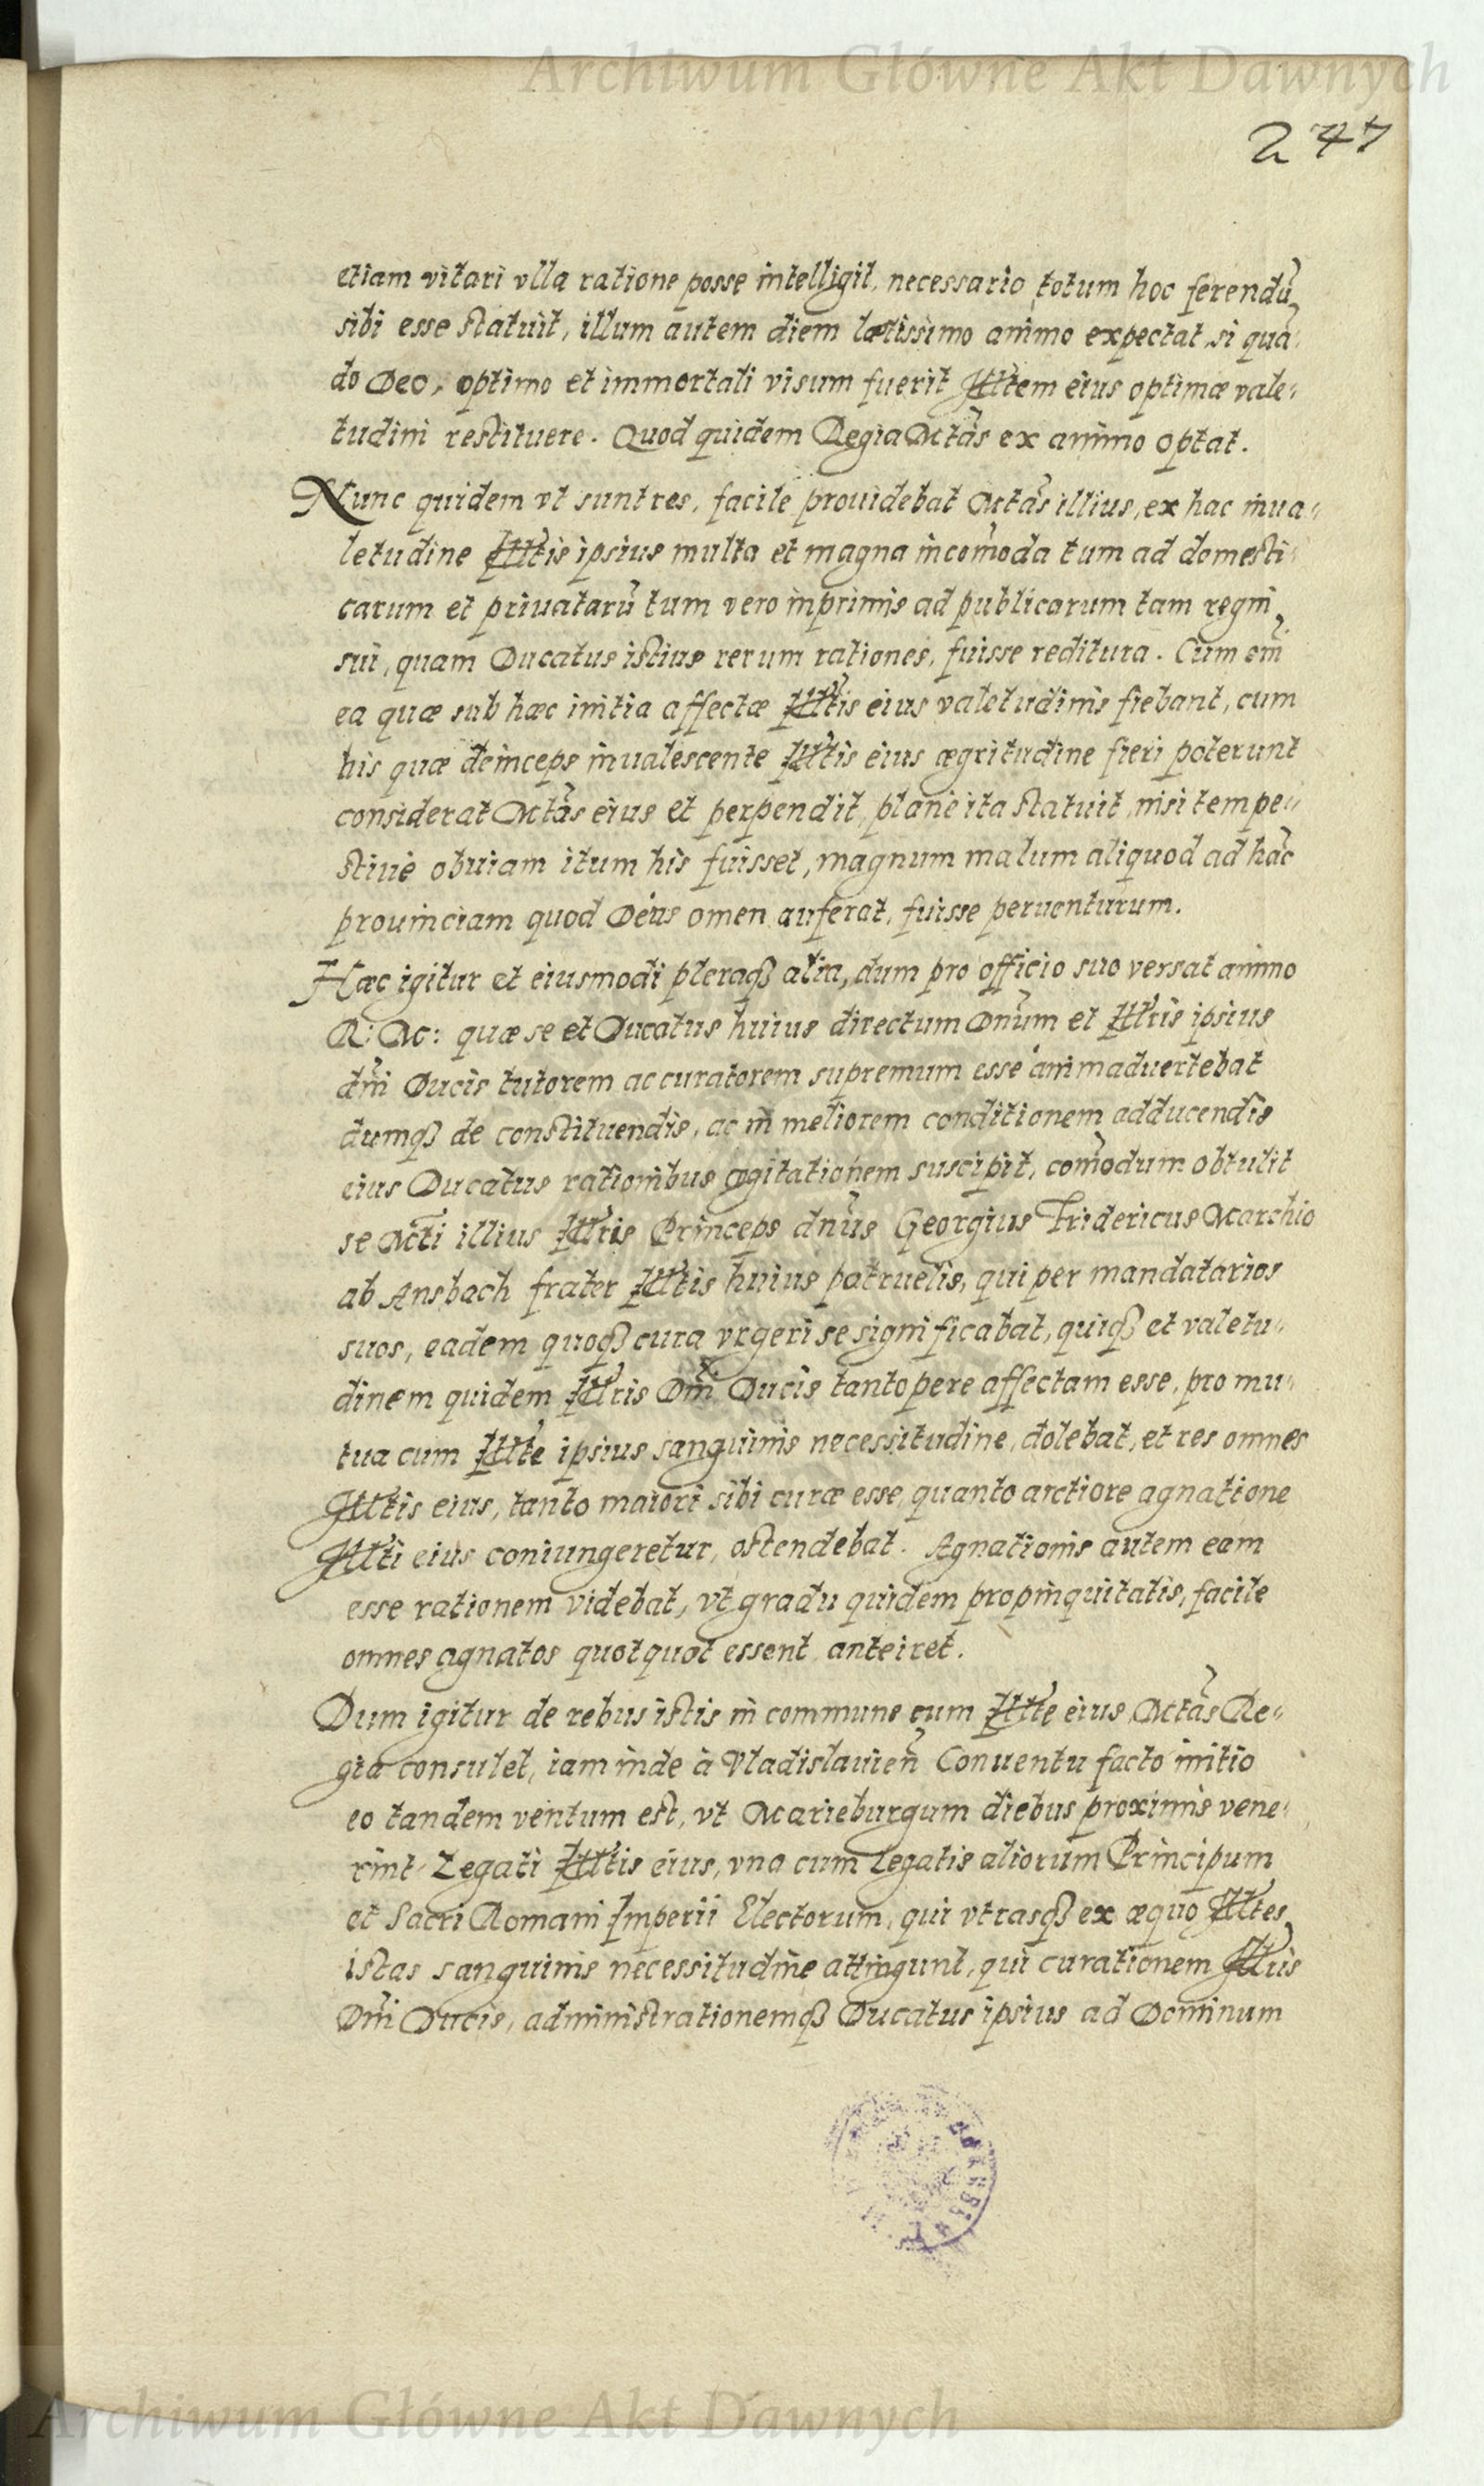 Archiwum Główne Akt Dawnych
247
etiam vitari vlla ratione posse intelligit, necessario totum hoc ferendũ
sibi esse statuit, illum autem diem lætissimo animo expectat, si quã-
do Deo, optimo et immortali visum fuerit Illtem eius optimæ vale-
tudini restituere. Quod quidem Regia Mtas ex animo optat.
Nunc quidem vt sunt res, facile prouidebat Mtas illius, ex hac inua-
letudine Illtis ipsius multa et magna incom̃oda tum ad domesti-
carum et priuatarũ tum vero inprimis ad publicarum tam regni
sui, quam Ducatus istius rerum rationes, fuisse reditura. Cum em̃
ea quæ sub hæc initia affectæ Illtis eius valetudinis fiebant, cum
his quæ deinceps inualescente Illtis eius ægritudine fieri poterunt
considerat Mtas eius et perpendit, plane ita statuit, nisi tempe-
stiue obuiam itum his fuisset, magnum malum aliquod ad hãc
prouinciam quod Deus omen auferat, fuisse peruenturum.
Hæc igitur et eiusmodi pleraqȝ alia, dum pro officio suo versat animo
R: M: quæ se et Ducatus huius directum Dnũm et Illris ipsius
dñi Ducis tutorem ac curatorem supremum esse animaduertebat
dumqȝ de constituendis, ac in meliorem conditionem adducendis
eius Ducatus rationibus cogitationem suscipit, com̃odum obtulit
se Mti illius Illris Princeps dñus Georgius Fridericus Marchio
ab Ansbach frater Illtis huius patruelis, qui per mandatarios
suos, eadem quoqȝ cura vrgeri se significabat, quiqȝ et valetu-
dinem quidem Illris Dñi Ducis tantopere affectam esse, pro mu-
tua cum Illte ipsius sanguinis necessitudine, dolebat, et res omnes
Illtis eius, tanto maiori sibi curæ esse, quanto arctiore agnatione
Illti eius coniungeretur, ostendebat. Agnationis autem eam
esse rationem videbat, vt gradu quidem propinquitatis, facile
omnes agnatos quotquot essent anteiret.
Dum igitur de rebus istis in commune cum Illte eius Mtas Re-
gia consulet, iam inde à Vladislauien̄ Conuentu facto initio
eo tandem ventum est, vt Marieburgum diebus proximis vene-
rint Legati Illtis eius, vna cum Legatis aliorum Principum
et Sacri Romani Imperii Electorum, qui vtrasqȝ ex æquo Illtes
istas sanguinis necessitudine attingunt, qui curationem Illris
Dñi Ducis, administrationemqȝ Ducatus ipsius ad Dominum
Archiwum Główne Akt Dawnych